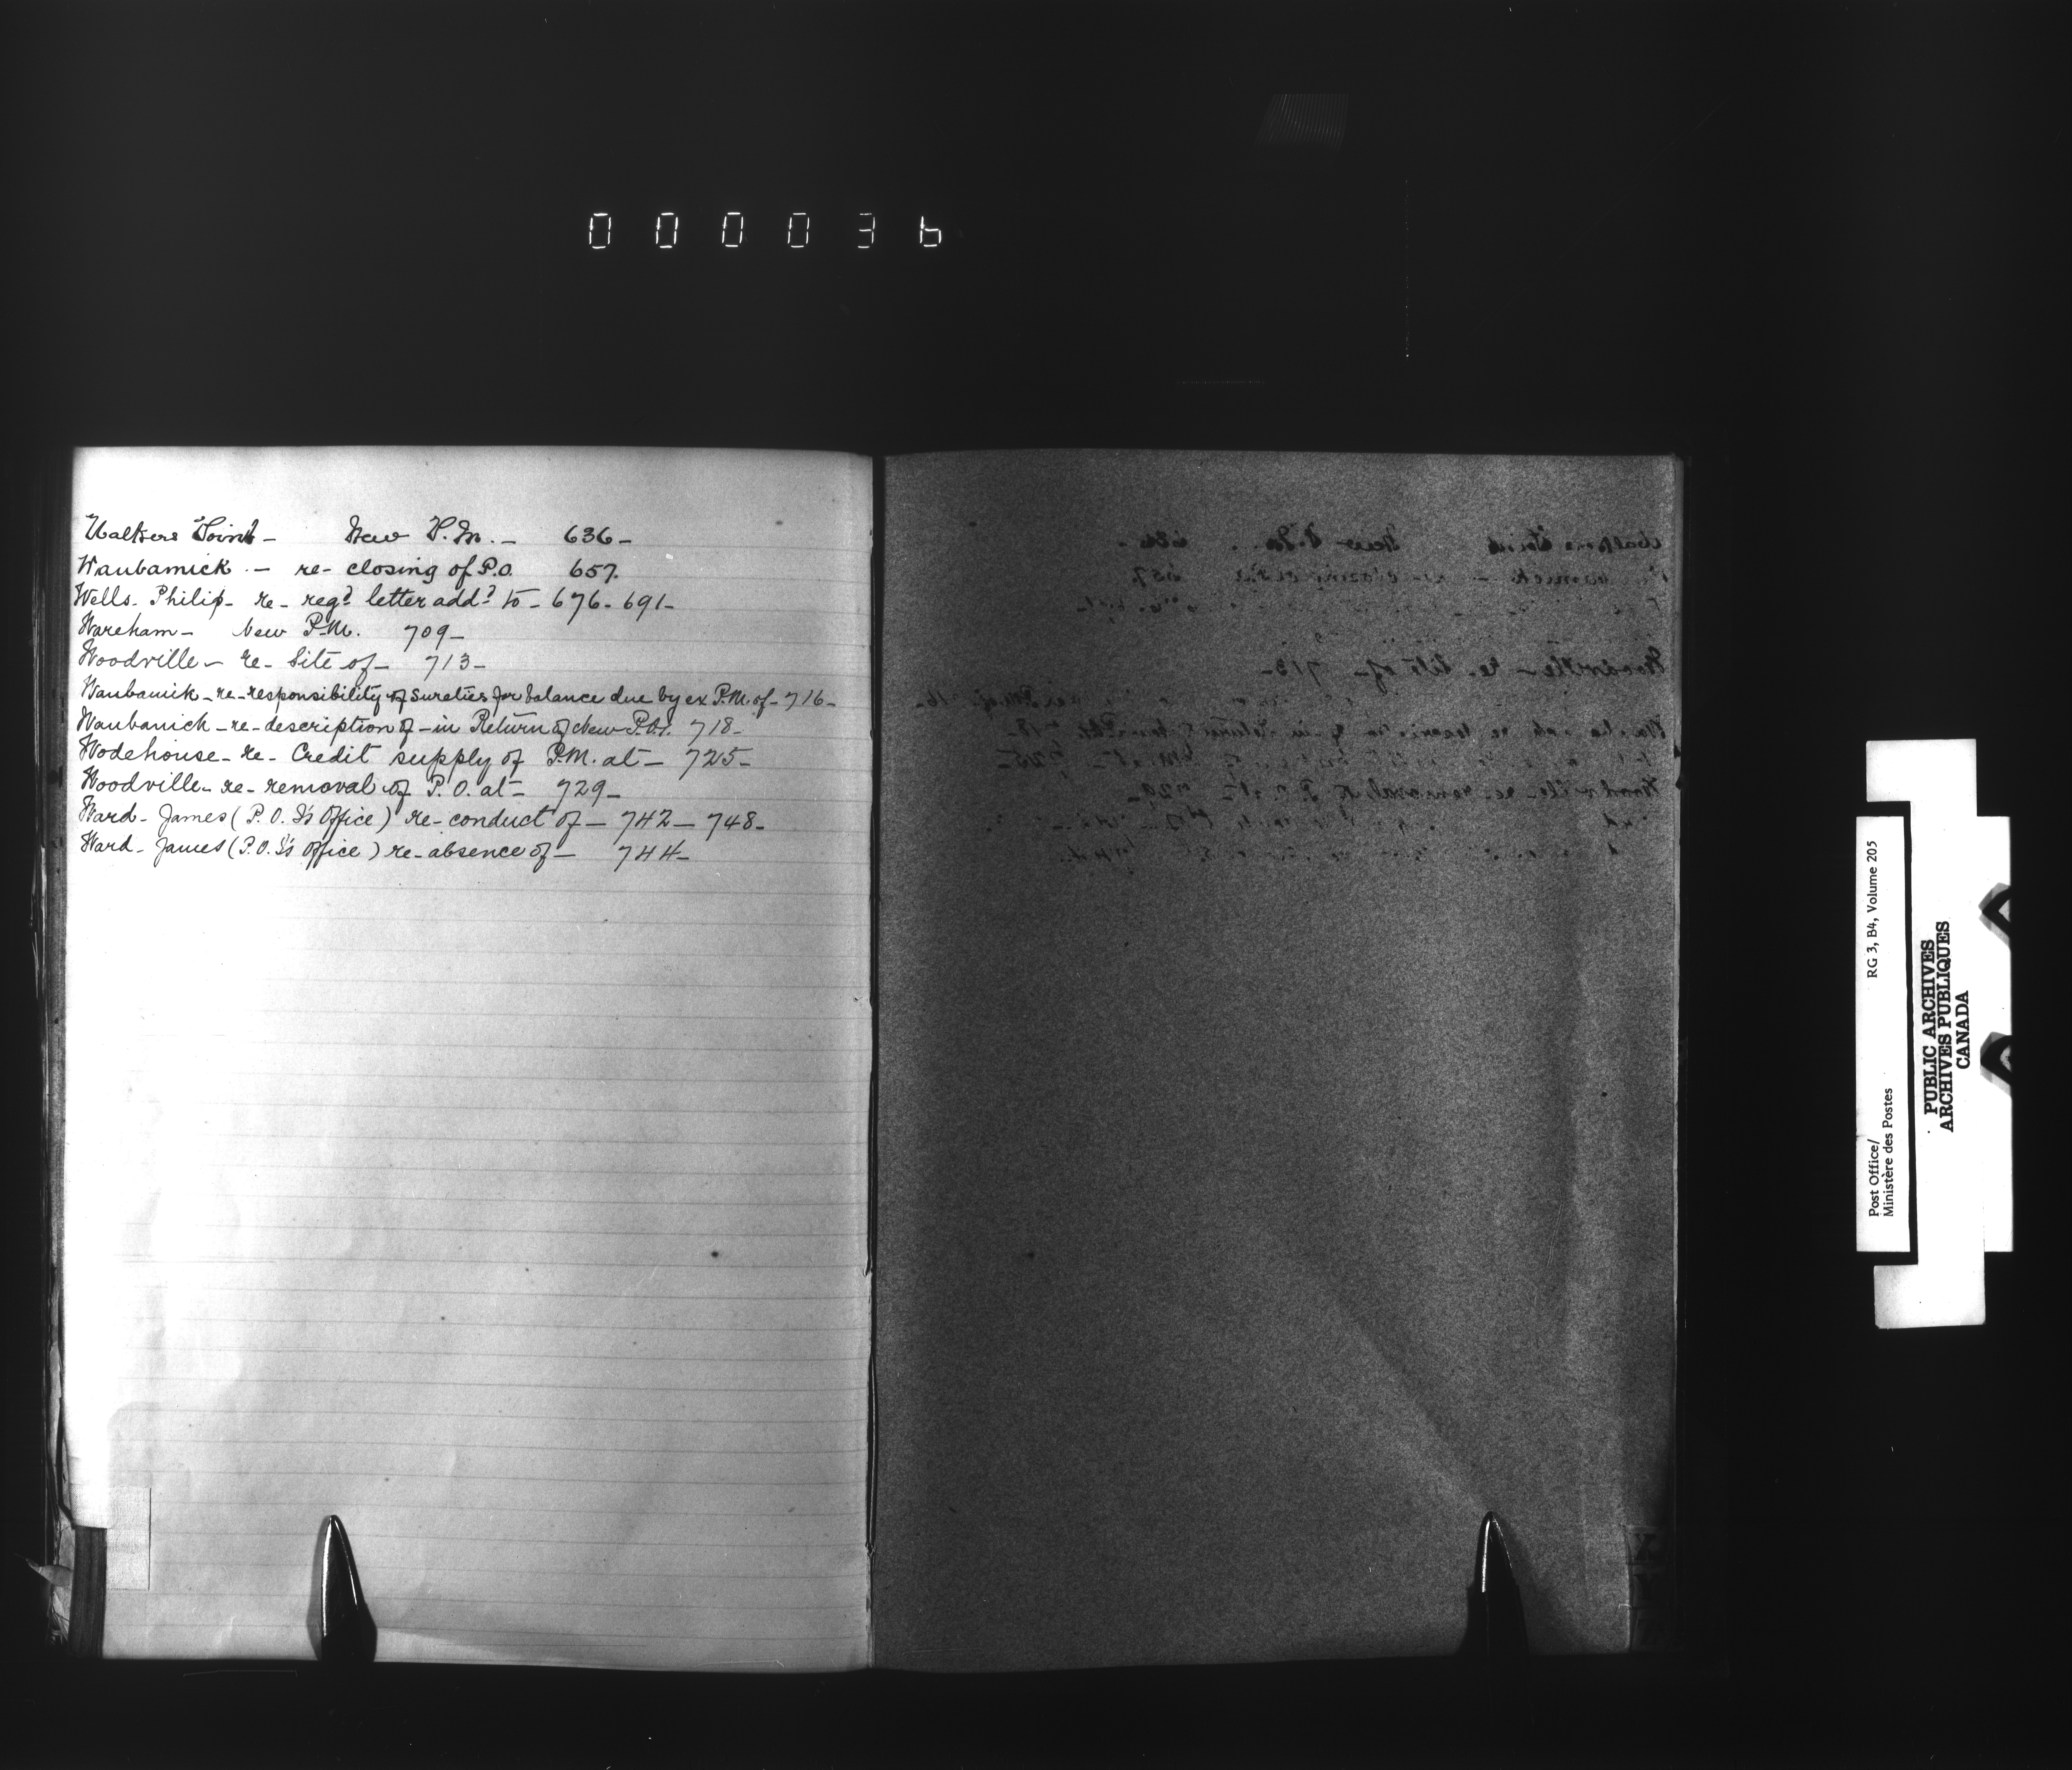 000036
Walkers Point - New P.M. - 636 -
Waubamick - re- closing of P.O. 657.
Wells. Philip - re- regd letter addd to - 676 - 691 -
Wareham - New P.M. 709 -
Woodville - re- Site of - 713 -
Waubamik - re- responsibility of sureties for balance due by ex P.M. of - 716 -
Waubanick - re- description of - in Return of New P.O.s. 718 -
Wodehouse - re- Credit supply of P.M. at - 725 -
Woodville - re- removal of P.O. at - 729 -
Ward - James (P.O. I's Office) re- conduct of - 742 - 748 -
Ward - James (P.O. I's Office) re- absence of - 744 -
Post Office/ RG 3, B4, Volume 205
Ministère des Postes
PUBLIC ARCHIVES
ARCHIVES PUBLIQUES
CANADA